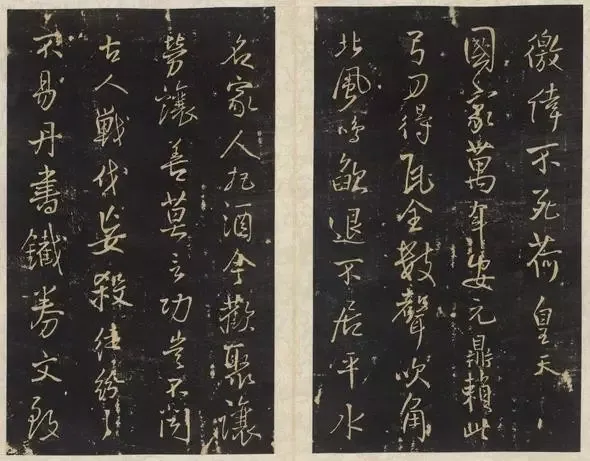 徼倖不死荷皇天
國家萬年安元鼎賴此
弓刀得瓦全數聲吹角
北風鳴歛退不居平水
名家人把酒會歡聚讓
勞讓善莫言功豈不聞
古人戰伐妄殺徒紛〻
不易丹書鐵券文致